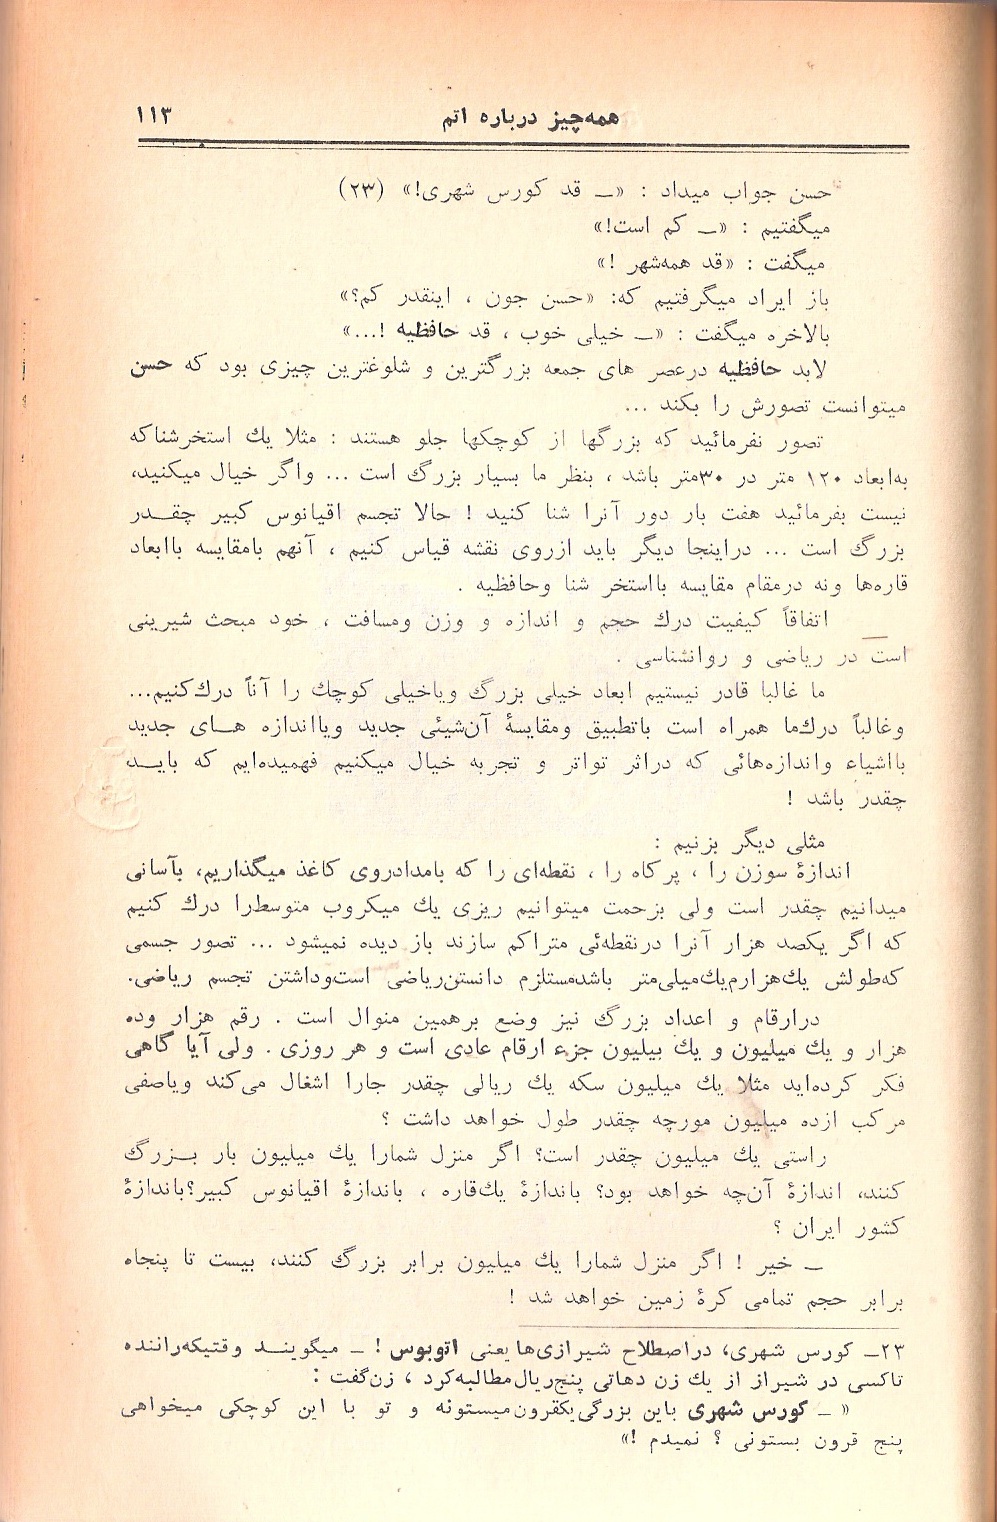 همه‌چیز درباره اتم
۱۱۳
حسن جواب میداد : «ــ قد کورس شهری!» (۲۳)
میگفتیم : «ــ کم است!»
میگفت : «قد همه‌شهر !»
باز ایراد میگرفتیم که: «حسن جون ، اینقدر کم؟»
بالاخره میگفت : «ــ خیلی خوب ، قد حافظیه !...»
لابد حافظیه درعصر های جمعه بزرگترین و شلوغترین چیزی بود که حسن
میتوانست تصورش را بکند ...
تصور نفرمائید که بزرگها از کوچکها جلو هستند : مثلا یك استخرشناکه
به‌ابعاد ۱۲۰ متر در ۳۰متر باشد ، بنظر ما بسیار بزرگ است ... واگر خیال میکنید،
نیست بفرمائید هفت بار دور آنرا شنا کنید ! حالا تجسم اقیانوس کبیر چقــدر
بزرگ است ... دراینجا دیگر باید ازروی نقشه قیاس کنیم ، آنهم بامقایسه باابعاد
قاره‌ها ونه درمقام مقایسه بااستخر شنا وحافظیه .
اتفاقاً کیفیت درك حجم و اندازه و وزن ومسافت ، خود مبحث شیرینی
است در ریاضی و روانشناسی .
ما غالبا قادر نیستیم ابعاد خیلی بزرگ ویاخیلی کوچك را آناً درك‌کنیم...
وغالباً درك‌ما همراه است باتطبیق ومقایسۀ آن‌شیئی جدید ویااندازه هــای جدید
بااشیاء واندازه‌هائی که دراثر تواتر و تجربه خیال میکنیم فهمیده‌ایم که بایــد
چقدر باشد !
مثلی دیگر بزنیم :
اندازۀ سوزن را ، پرکاه را ، نقطه‌ای را که بامدادروی کاغذ میگذاریم، بآسانی
میدانیم چقدر است ولی بزحمت میتوانیم ریزی یك میکروب متوسط‌را درك کنیم
که اگر یکصد هزار آنرا درنقطه‌ئی متراکم سازند باز دیده نمیشود ... تصور جسمی
که‌طولش یك‌هزارم‌یك‌میلی‌متر باشدمستلزم دانستن‌ریاضی است‌وداشتن تجسم ریاضی.
درارقام و اعداد بزرگ نیز وضع برهمین منوال است . رقم هزار وده
هزار و یك میلیون و یك بیلیون جزء ارقام عادی است و هر روزی . ولی آیا گاهی
فکر کرده‌اید مثلا یك میلیون سکه یك ریالی چقدر جارا اشغال می‌کند ویاصفی
مرکب ازده میلیون مورچه چقدر طول خواهد داشت ؟
راستی یك میلیون چقدر است؟ اگر منزل شمارا یك میلیون بار بــزرگ
کنند، اندازۀ آن‌چه خواهد بود؟ باندازۀ یك‌قاره ، باندازۀ اقیانوس کبیر؟باندازۀ
کشور ایران ؟
ــ خیر ! اگر منزل شمارا یك میلیون برابر بزرگ کنند، بیست تا پنجاه
برابر حجم تمامی کرۀ زمین خواهد شد !
۲۳ــ کورس شهری، دراصطلاح شیرازی‌هایعنی اتوبوس ! ــ میگوینــد وقتیکه‌راننده
تاکسی در شیراز از یك زن دهاتی پنج‌ریال‌مطالبه‌کرد ، زن‌گفت :
« ــ کورس شهری باین بزرگی‌یکقرون‌میستونه و تو با این کوچکی میخواهی
پنج قرون بستونی ؟ نمیدم !»